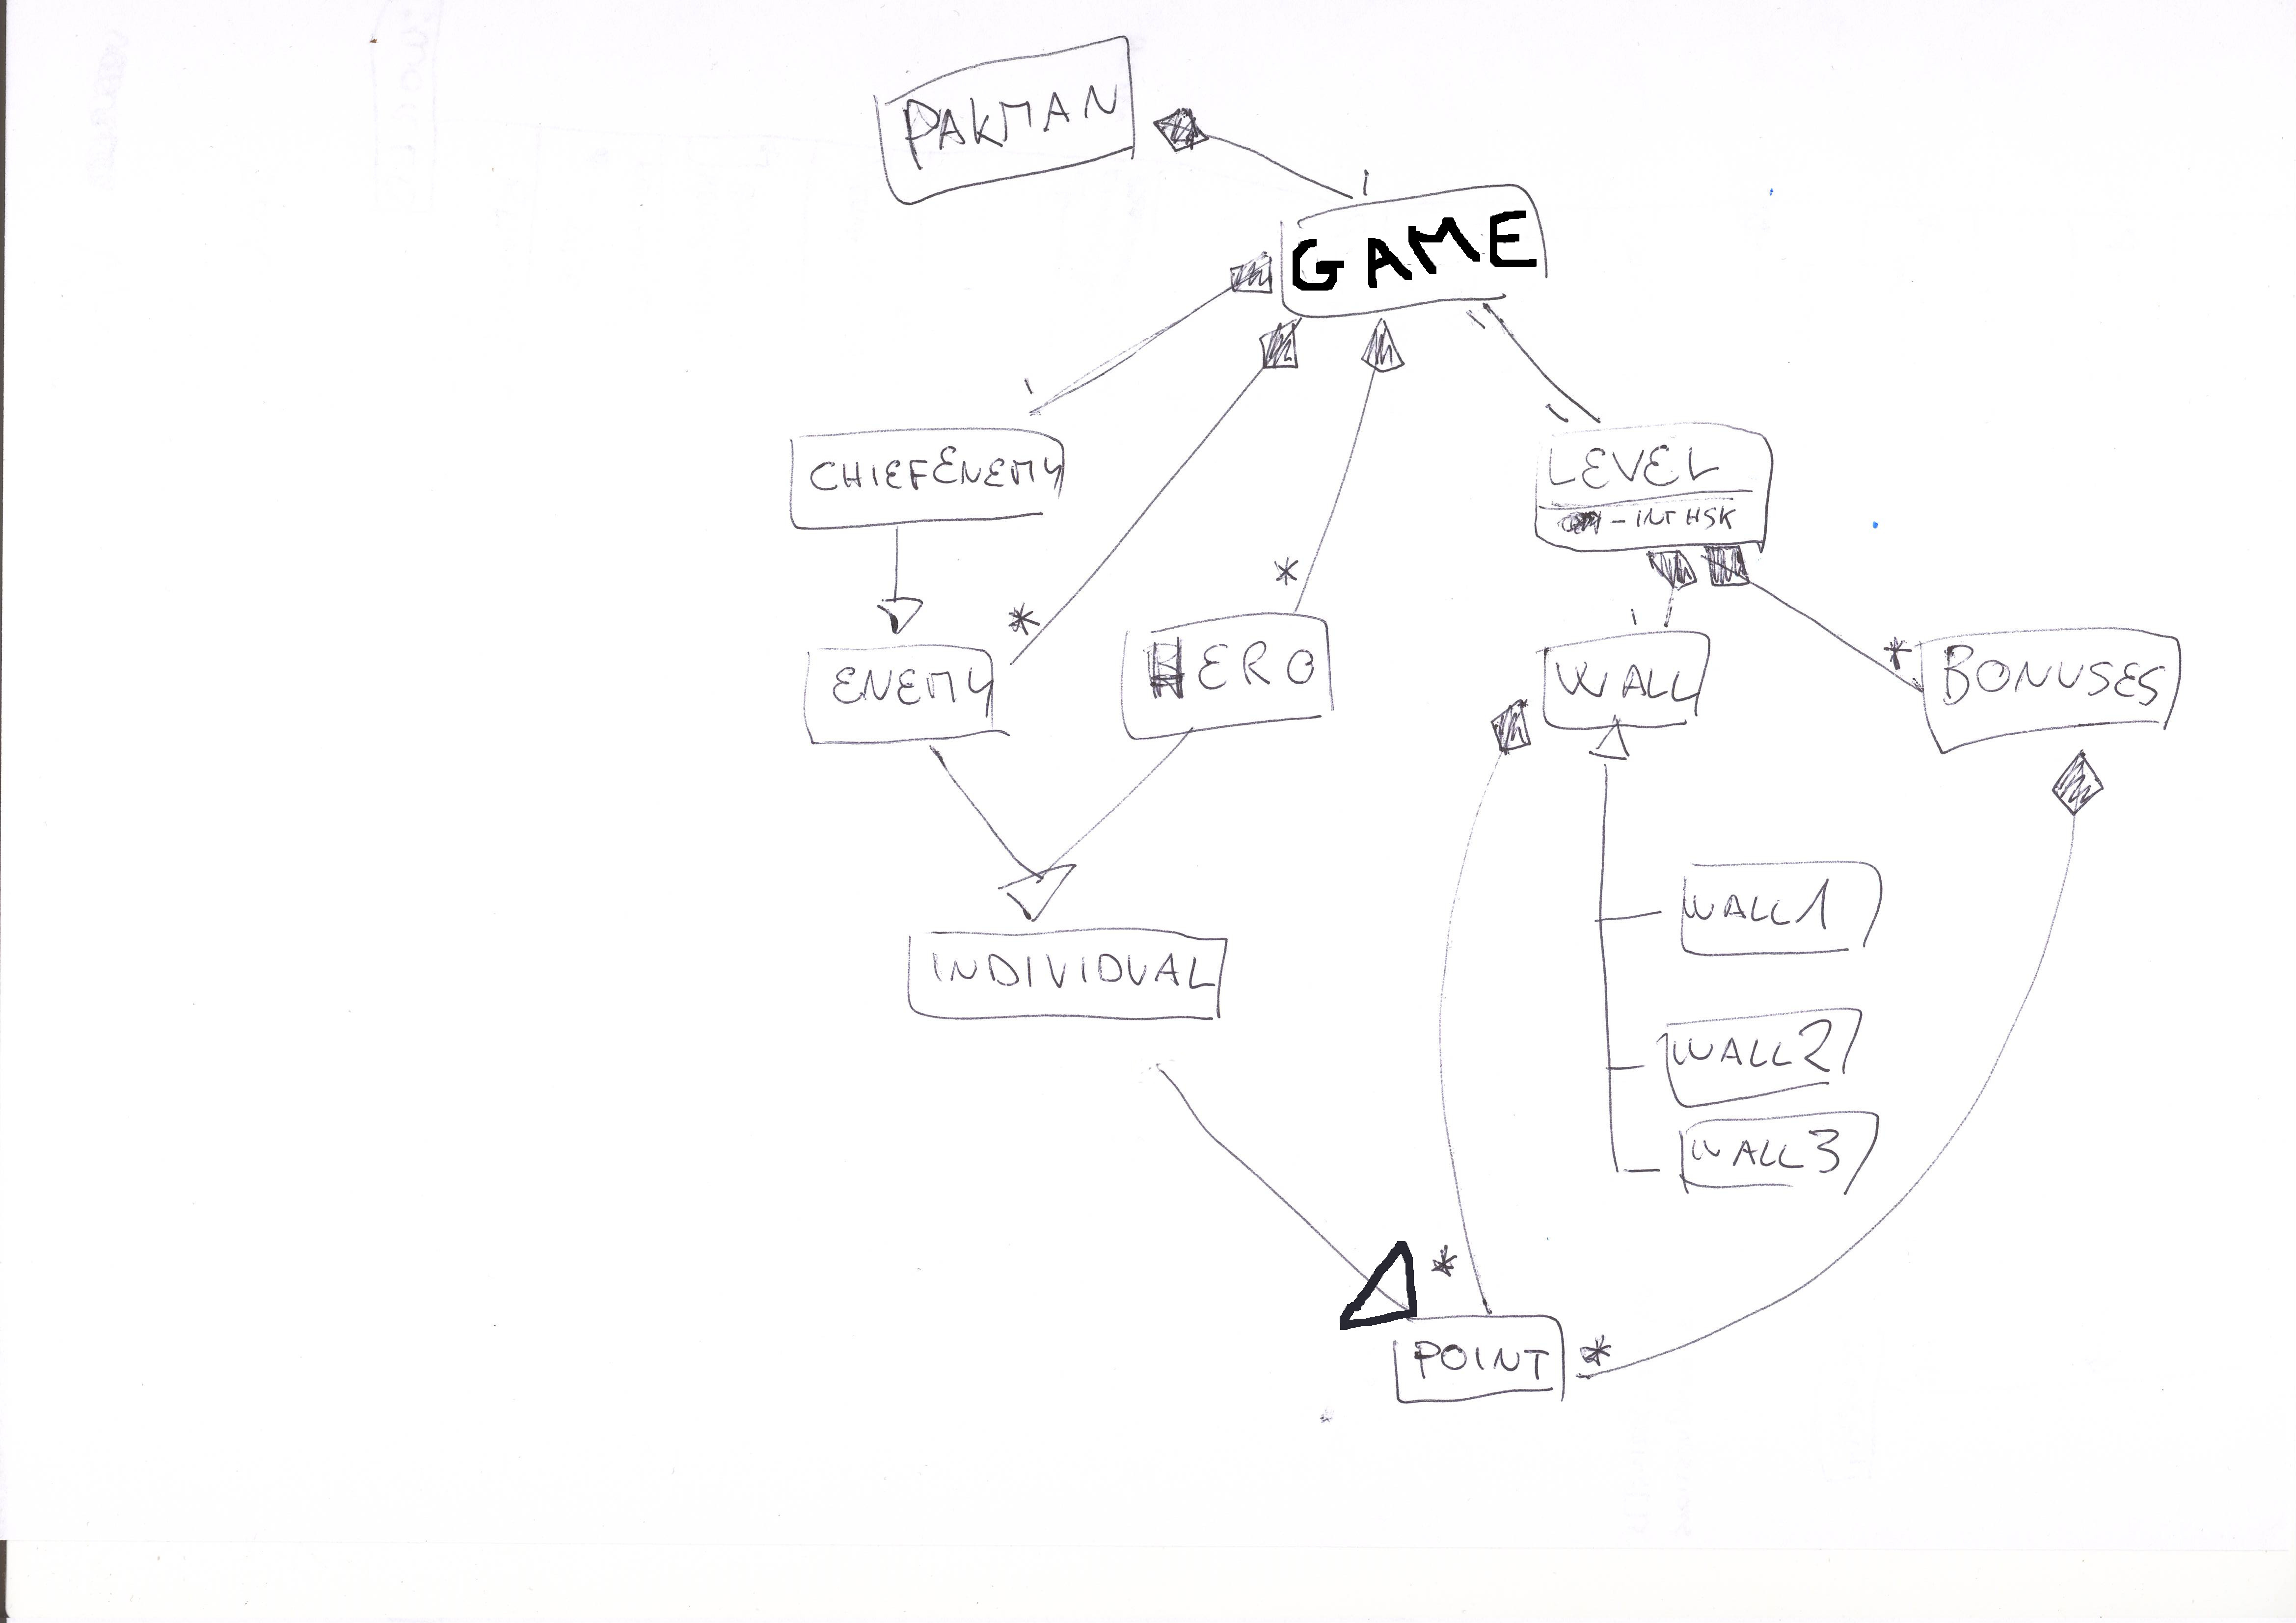 PAKMAN
1
GAME
1
1
1
CHIEFENEMY
LEVEL
- INT HSK
*
*
1
*
ENEMY
HERO
WALL
BONUSES
WALL1
INDIVIDUAL
WALL2
WALL3
*
POINT
*